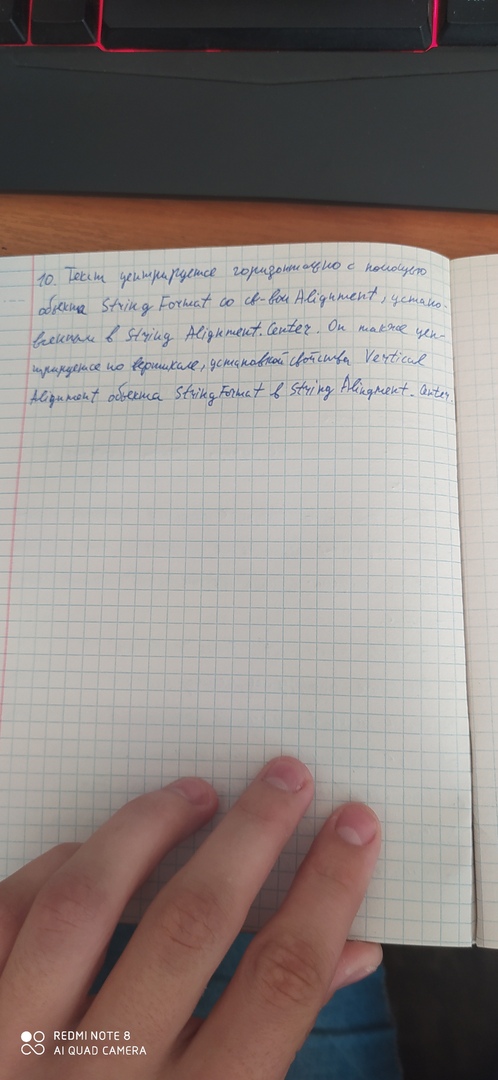 10. Текст центрируется горизонтально с помощью
объекта String Format со св-вом Alignment, устано-
вленным в String Alignment.Center. Он также цен-
трируется по вертикале, установкой свойства Vertical
Alignment объекта StringFormat в String Alingment. Center.
REDMI NOTE 8
AI QUAD CAMERA